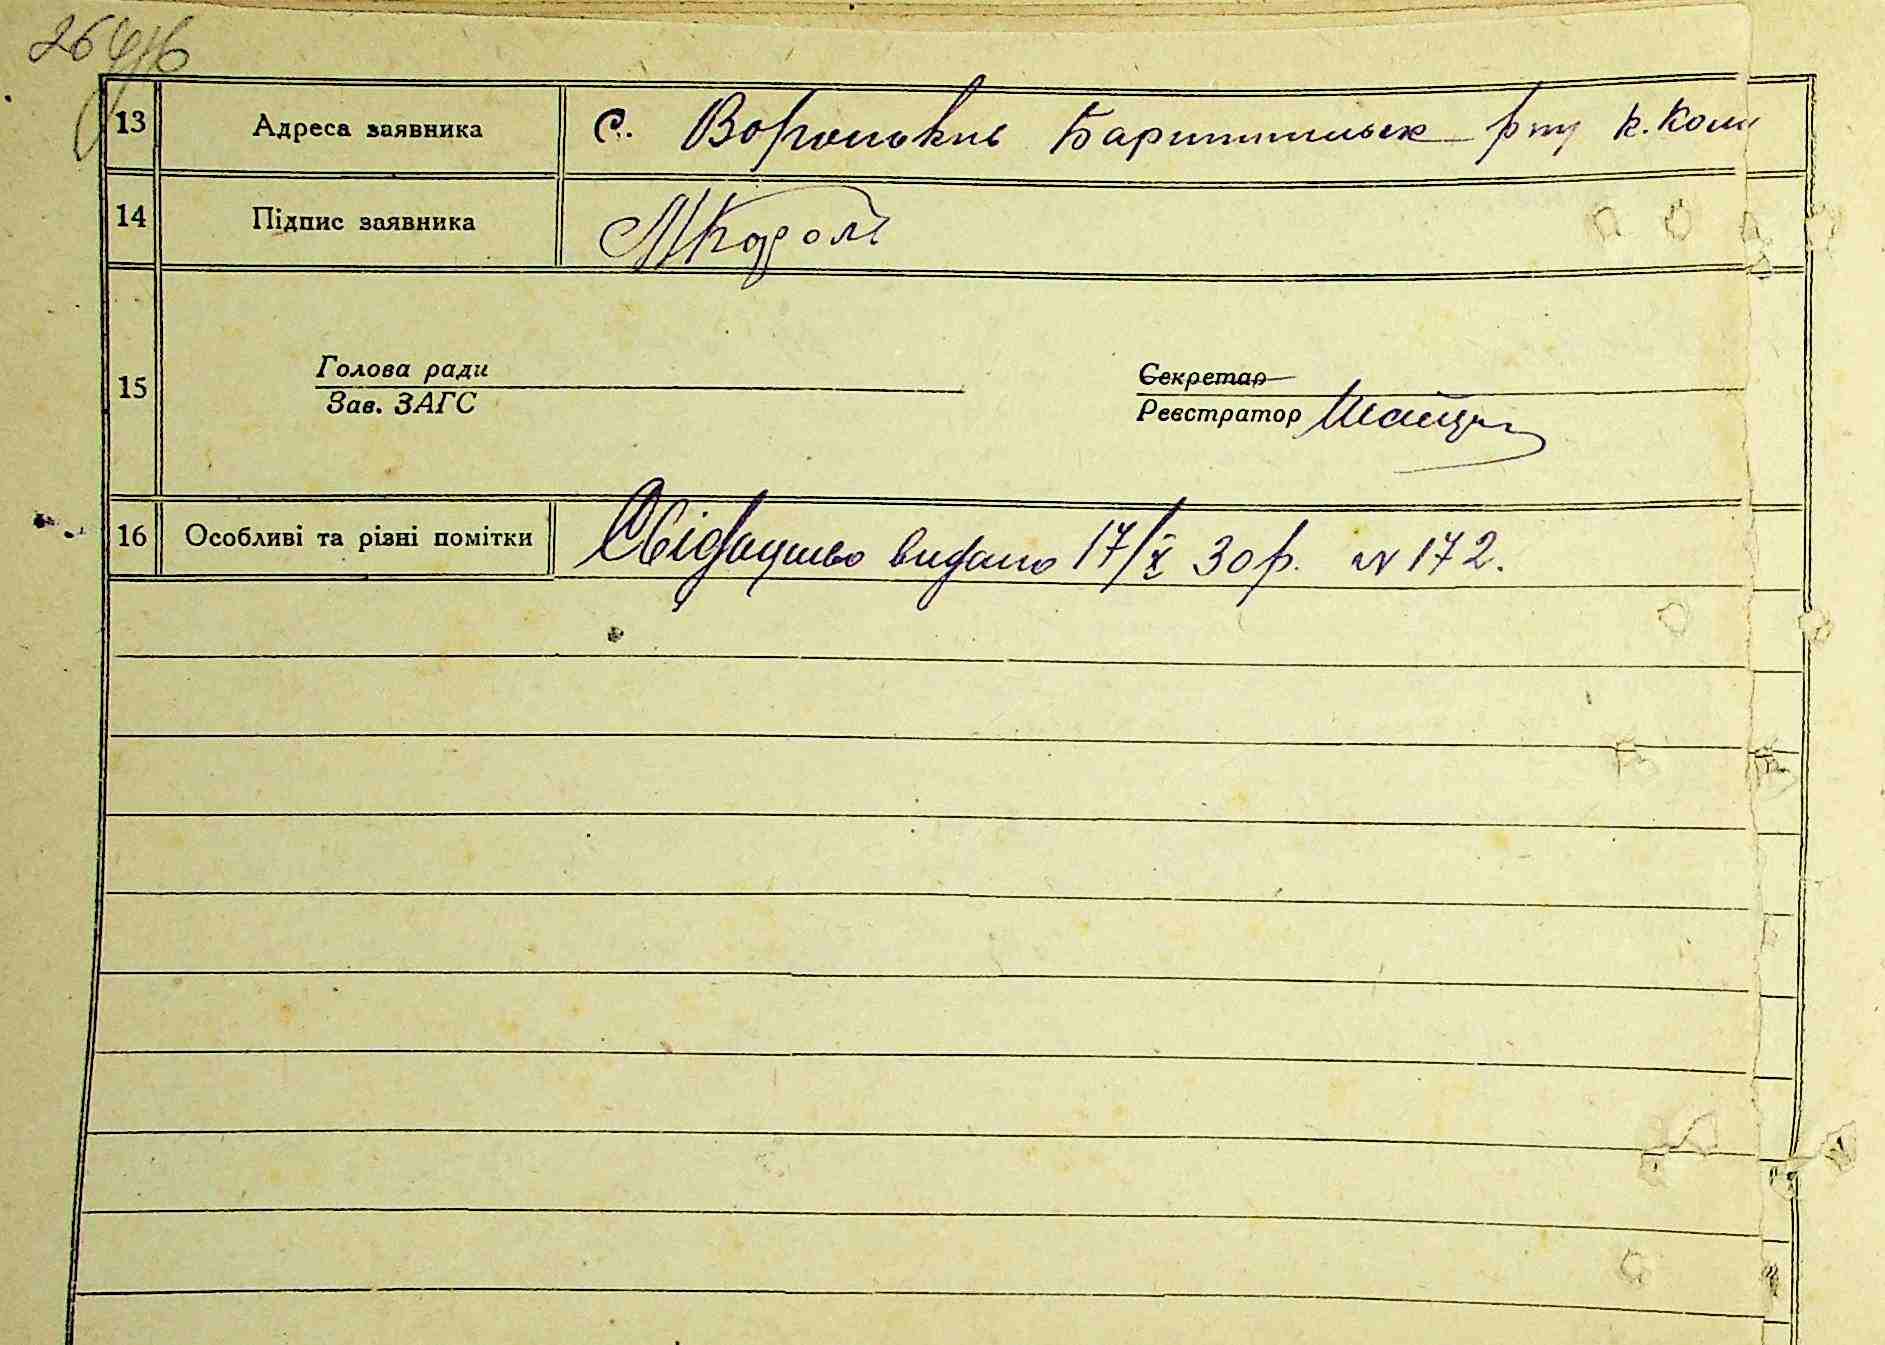 26
13 Адреса заявника с. Вороньків Баришпільськ р-ну к. Коми
14 Підпис заявника МКороль
15 Голова ради Секретар
Зав. ЗАГС Реєстратор
16 Особливі та різні помітки Свідоцтво видано 17/X 30 р. № 172.